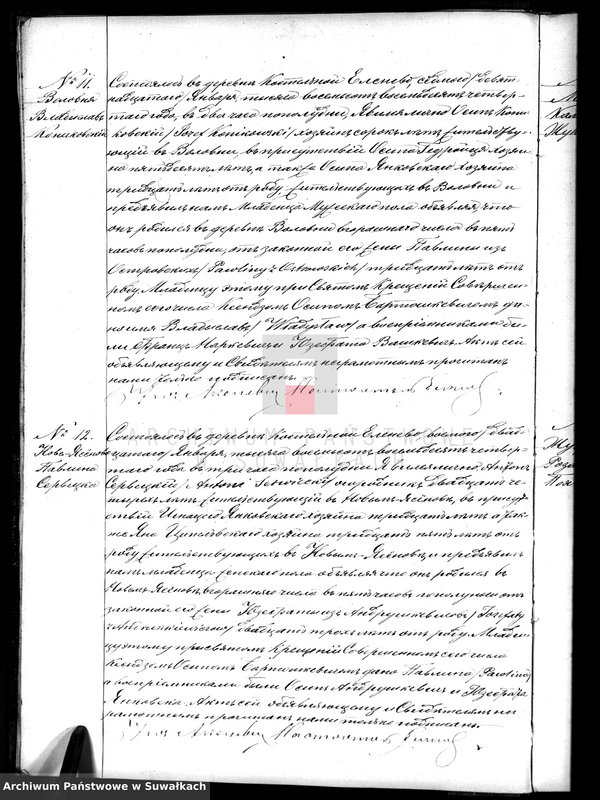 № 11.
Воловня
Владислав
Кониковский
Состоялось въ деревнѣ Костельной Еленево, седьмого / девят-
надцатого / Января, тысяча восемьсотъ восемьдесятъ четвер-
таго года, въ два часа пополудни, Явился лично Осипъ Кони-
ковскій / Józef Konikowski / хозяинъ сорока лѣтъ жительству-
ющій въ Воловни, въ присутствіи Осипа Гедройця хозяи-
на пятьдесятъ лѣтъ, а также Осипа Янковскаго хозяина
тридцать лѣтъ отъ роду, жительствующихъ въ Воловни и
предъявилъ намъ Младенца Мужескаго пола объявляя, что
онъ родился въ деревнѣ Воловни вчерашняго числа въ пять
часовъ пополудни, отъ законной его жены Павлины изъ
Островскихъ / Pauliny z Ostrowskich / тридцать лѣтъ отъ
роду. Младенцу этому при Святомъ Крещеніи Совершен-
номъ сего числа Ксендзомъ Осипомъ Бартошкевичемъ да-
но имя Владиславъ / Władysław / а воспріемниками бы-
ли Францъ Маркевичъ и Юзефата Вашкевичъ. Актъ сей
объявляющему и Свидѣтелямъ неграмотнымъ прочитанъ
нами только подписанъ.
№ 12.
Новы-Ясёновъ
Павлина
Сервицка
Состоялось въ деревнѣ Костельной Еленево, восьмого / двад-
цатаго / Января, тысяча восемьсотъ восемьдесятъ четвер-
таго года въ три часа пополудни Явился лично Антонъ
Сервицкій / Antoni огородникъ двадцать че-
тырехъ лѣтъ жительствующій въ Новымъ-Ясёновѣ, въ присут-
ствіи Игнація Янковскаго хозяина тридцать лѣтъ а так-
же Яна хозяина тридцать пять лѣтъ отъ
роду жительствующихъ въ Новымъ-Ясёновѣ, и предъявилъ
намъ младенца женскаго пола объявляя что онъ родился въ
Новымъ Ясёновѣ, вчерашняго числа въ пять часовъ пополудни отъ
законной его жены Юзефаты изъ Андрушкевичовъ / Józefaty
z двадцать трехъ лѣтъ отъ роду. Младен-
цу этому при святомъ Крещеніи Совершенномъ сего числа
Ксендзомъ Осипомъ Бартошкевичемъ дано Павлина / Paulina /
а воспріемниками были Осипъ Андрушкевичъ и Юзефата
Янковска. Актъ сей объявляющему и Свидѣтелямъ не-
грамотнымъ прочитанъ нами только подписанъ.
ARCHIWUM PAŃSTWOWE
Archiwum Państwowe w Suwałkach